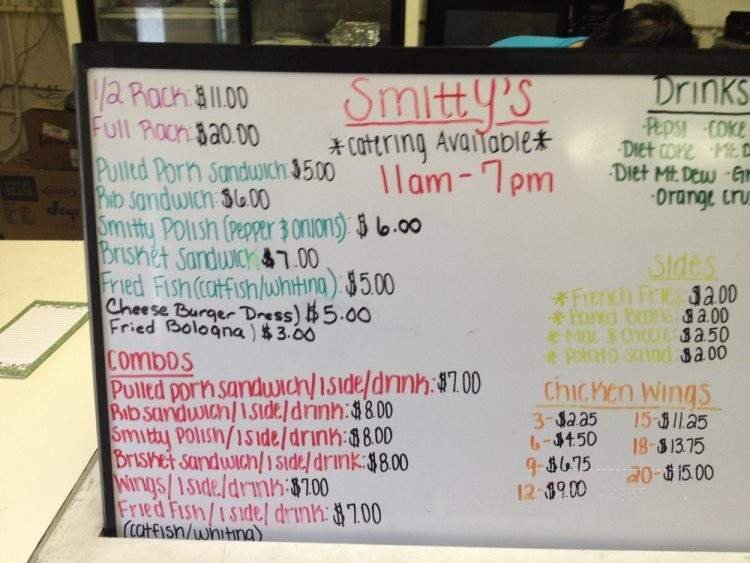 1/2 Rack: $11.00
Full Rack: $20.00
Pulled Pork Sandwich: $5.00
Rib sandwich: $6.00
Smitty Polish (pepper & onions): $6.00
Brisket Sandwich $7.00
Fried Fish (catfish/whiting): $5.00
Cheese Burger Dress) $5.00
Fried Bologna) $3.00
Combos
Pulled pork sandwich/1 side/drink: $7.00
Rib sandwich/1 side/drink: $8.00
Smitty Polish/1 side/drink: $8.00
Brisket sandwich/1 side/drink: $8.00
Wings/1 side/drink: $7.00
Fried Fish/1 side/drink: $7.00
(catfish/whiting)
Smitty's
*Catering Available*
11am-7pm
Drinks
·Pepsi ·Coke
·Diet Coke ·Mt. D
·Diet Mt. Dew
·Orange Cru
Sides
*French Fries $2.00
*Baked Beans $2.00
*Mac & Cheese $2.50
*Potato Salad $2.00
Chicken Wings
3-$2.25
6-$4.50
9-$6.75
12-$9.00
15-$11.25
18-$13.75
20-$15.00